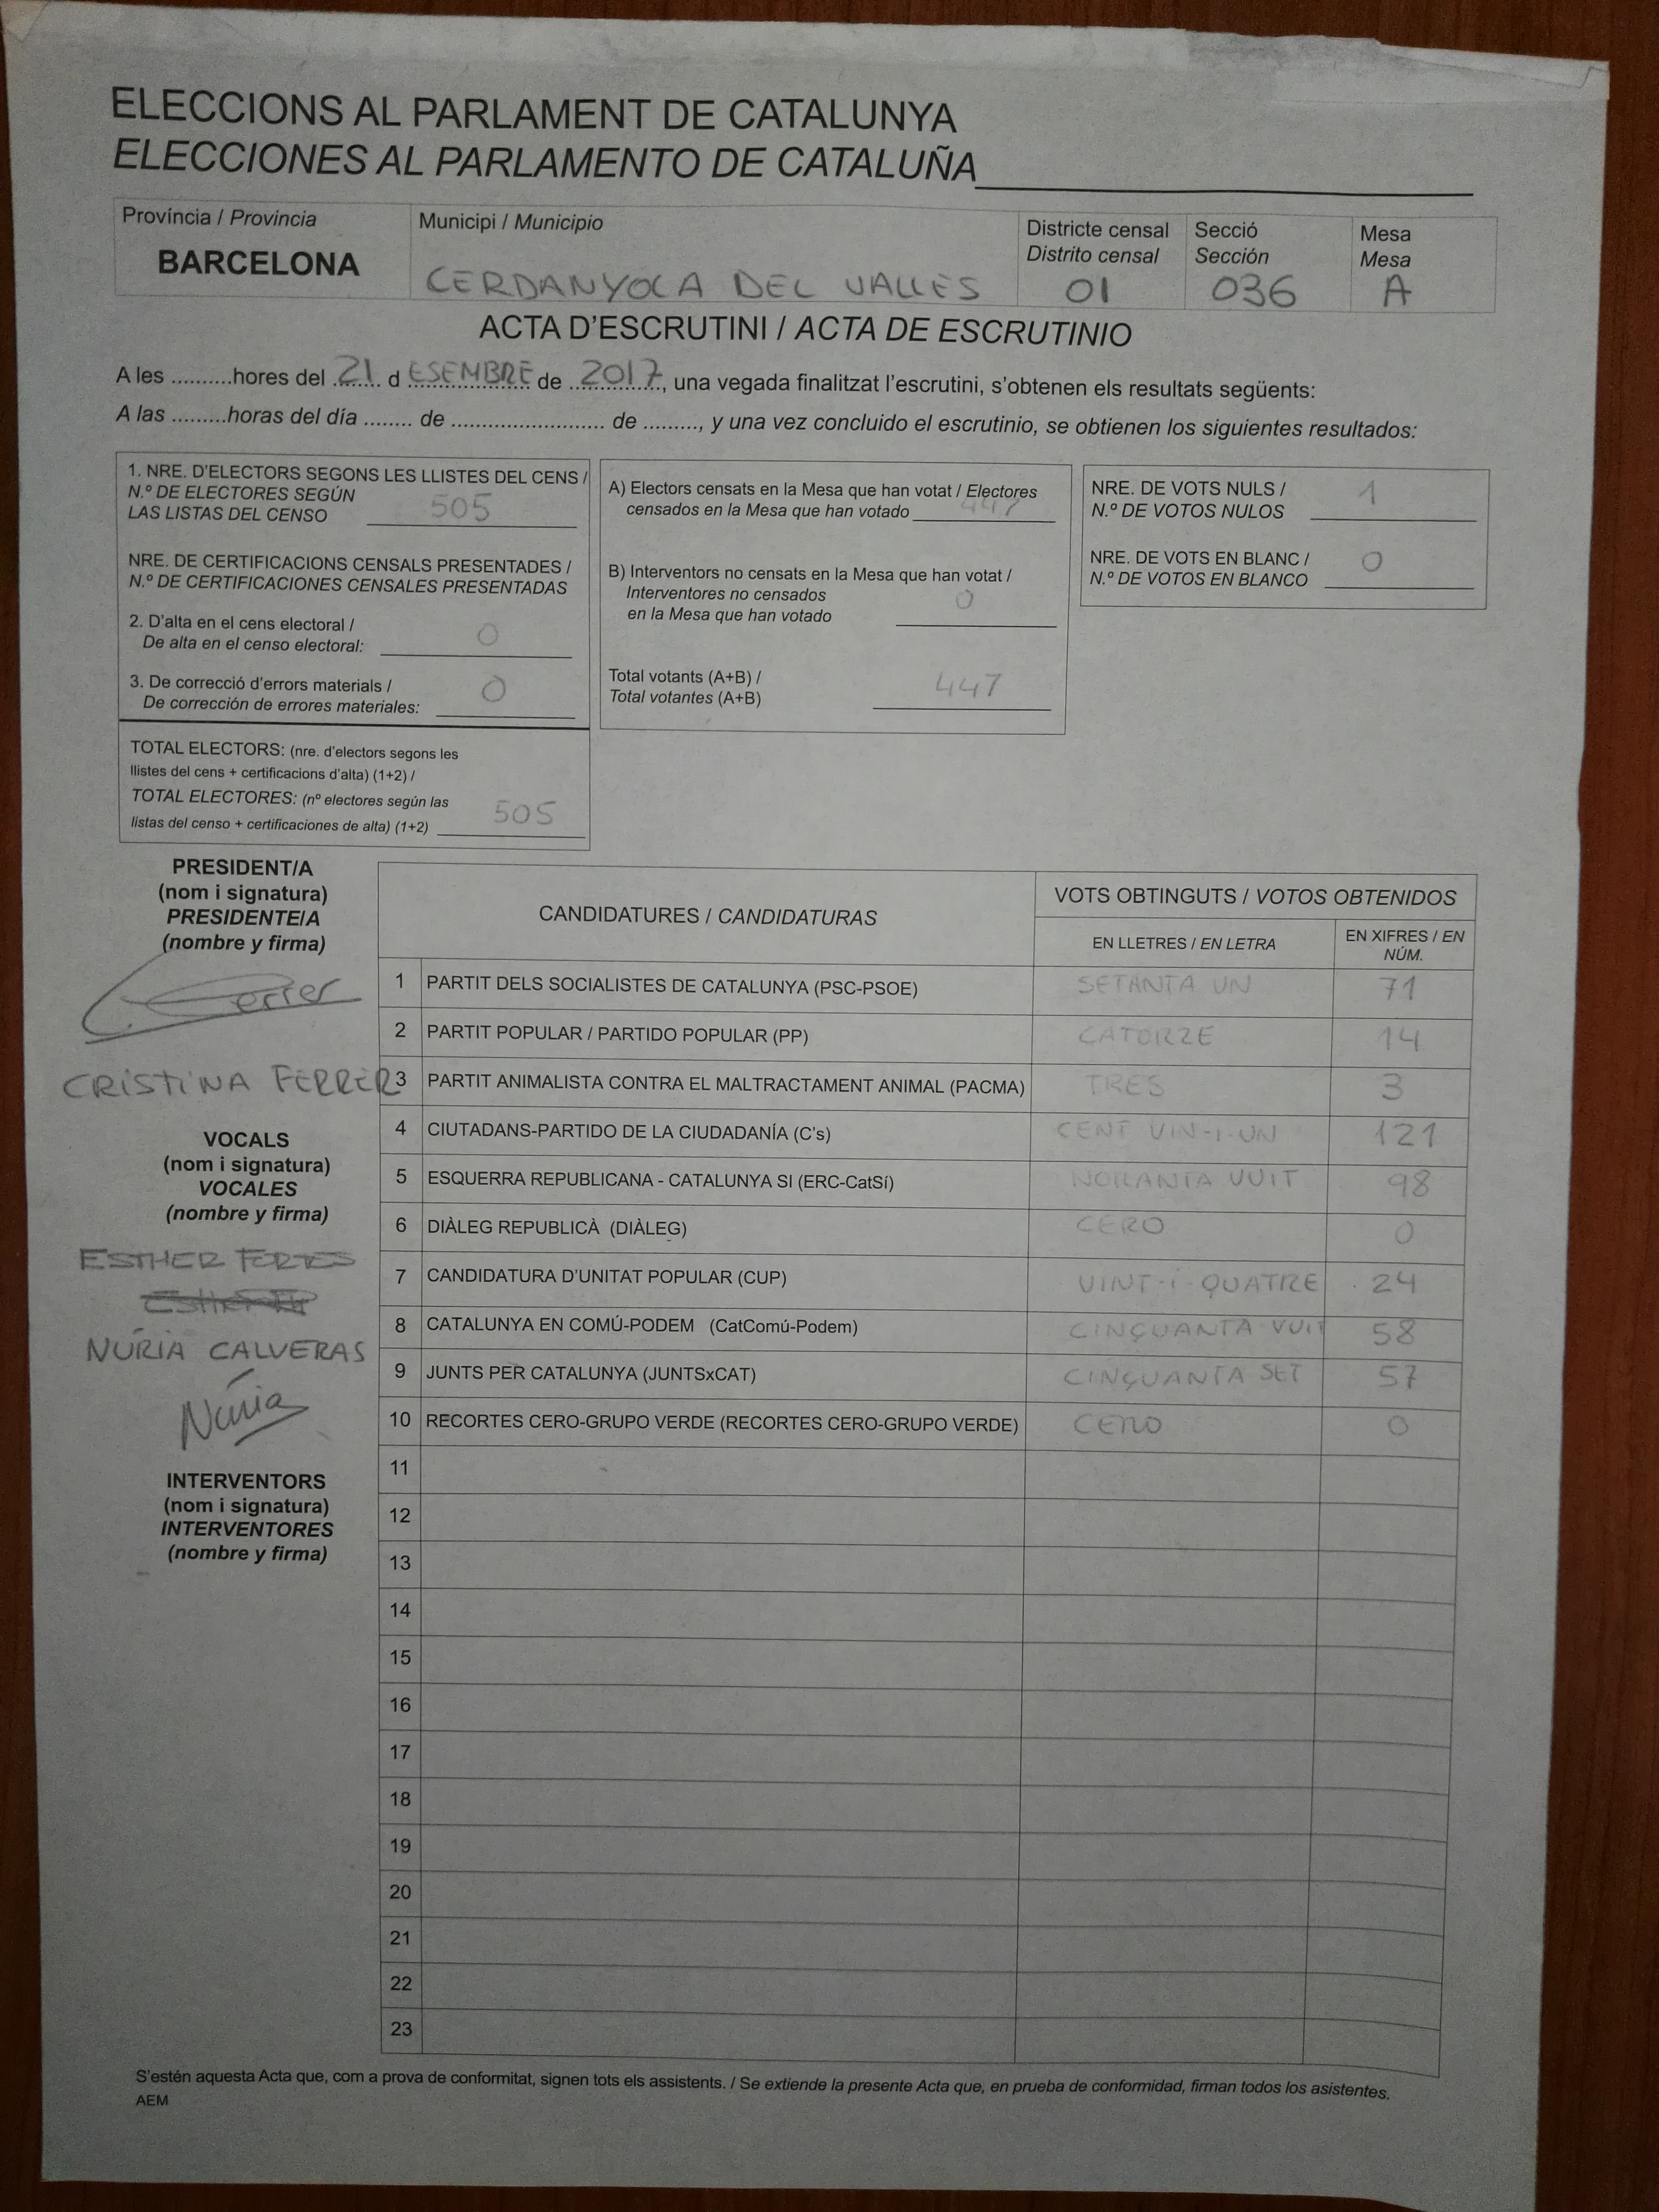 ELECCIONS AL PARLAMENT DE CATALUNYA
ELECCIONES AL PARLAMENTO DE CATALUÑA
Província / Provincia
BARCELONA
Municipi / Municipio
CERDANYOLA DEL VALLES
Districte censal
Distrito censal
01
Secció
Sección
036
Mesa
Mesa
A
ACTA D'ESCRUTINI / ACTA DE ESCRUTINIO
A les .........hores del 21 d ESEMBRE de 2017, una vegada finalitzat l'escrutini, s'obtenen els resultats següents:
A las .........horas del día ........ de .......................... de ........., y una vez concluido el escrutinio, se obtienen los siguientes resultados:
1. NRE. D'ELECTORS SEGONS LES LLISTES DEL CENS /
N.º DE ELECTORES SEGÚN
LAS LISTAS DEL CENSO 505
NRE. DE CERTIFICACIONS CENSALS PRESENTADES /
N.º DE CERTIFICACIONES CENSALES PRESENTADAS
2. D'alta en el cens electoral /
De alta en el censo electoral: 0
3. De correcció d'errors materials /
De corrección de errores materiales: 0
TOTAL ELECTORS: (nre. d'electors segons les
llistes del cens + certificacions d'alta) (1+2) /
TOTAL ELECTORES: (nº electores según las
listas del censo + certificaciones de alta) (1+2) 505
A) Electors censats en la Mesa que han votat / Electores
censados en la Mesa que han votado 447
B) Interventors no censats en la Mesa que han votat /
Interventores no censados
en la Mesa que han votado 0
Total votants (A+B) /
Total votantes (A+B) 447
NRE. DE VOTS NULS /
N.º DE VOTOS NULOS 1
NRE. DE VOTS EN BLANC /
N.º DE VOTOS EN BLANCO 0
PRESIDENT/A
(nom i signatura)
PRESIDENTE/A
(nombre y firma)
Ferrer
CRISTINA FERRER
VOCALS
(nom i signatura)
VOCALES
(nombre y firma)
ESTHER
NÚRIA CALVERAS
Núria
INTERVENTORS
(nom i signatura)
INTERVENTORES
(nombre y firma)
CANDIDATURES / CANDIDATURAS
VOTS OBTINGUTS / VOTOS OBTENIDOS
EN LLETRES / EN LETRA
EN XIFRES / EN
NÚM.
1 PARTIT DELS SOCIALISTES DE CATALUNYA (PSC-PSOE) SETANTA UN 71
2 PARTIT POPULAR / PARTIDO POPULAR (PP) CATORZE 14
3 PARTIT ANIMALISTA CONTRA EL MALTRACTAMENT ANIMAL (PACMA) TRES 3
4 CIUTADANS-PARTIDO DE LA CIUDADANÍA (C's) CENT VIN-I-UN 121
5 ESQUERRA REPUBLICANA - CATALUNYA SI (ERC-CatSí) NORANTA VUIT 98
6 DIÀLEG REPUBLICÀ (DIÀLEG) CERO 0
7 CANDIDATURA D'UNITAT POPULAR (CUP) VINT-i-QUATRE 24
8 CATALUNYA EN COMÚ-PODEM (CatComú-Podem) CINQUANTA VUIT 58
9 JUNTS PER CATALUNYA (JUNTSxCAT) CINQUANTA SET 57
10 RECORTES CERO-GRUPO VERDE (RECORTES CERO-GRUPO VERDE) CERO 0
11
12
13
14
15
16
17
18
19
20
21
22
23
S'estén aquesta Acta que, com a prova de conformitat, signen tots els assistents. / Se extiende la presente Acta que, en prueba de conformidad, firman todos los asistentes.
AEM